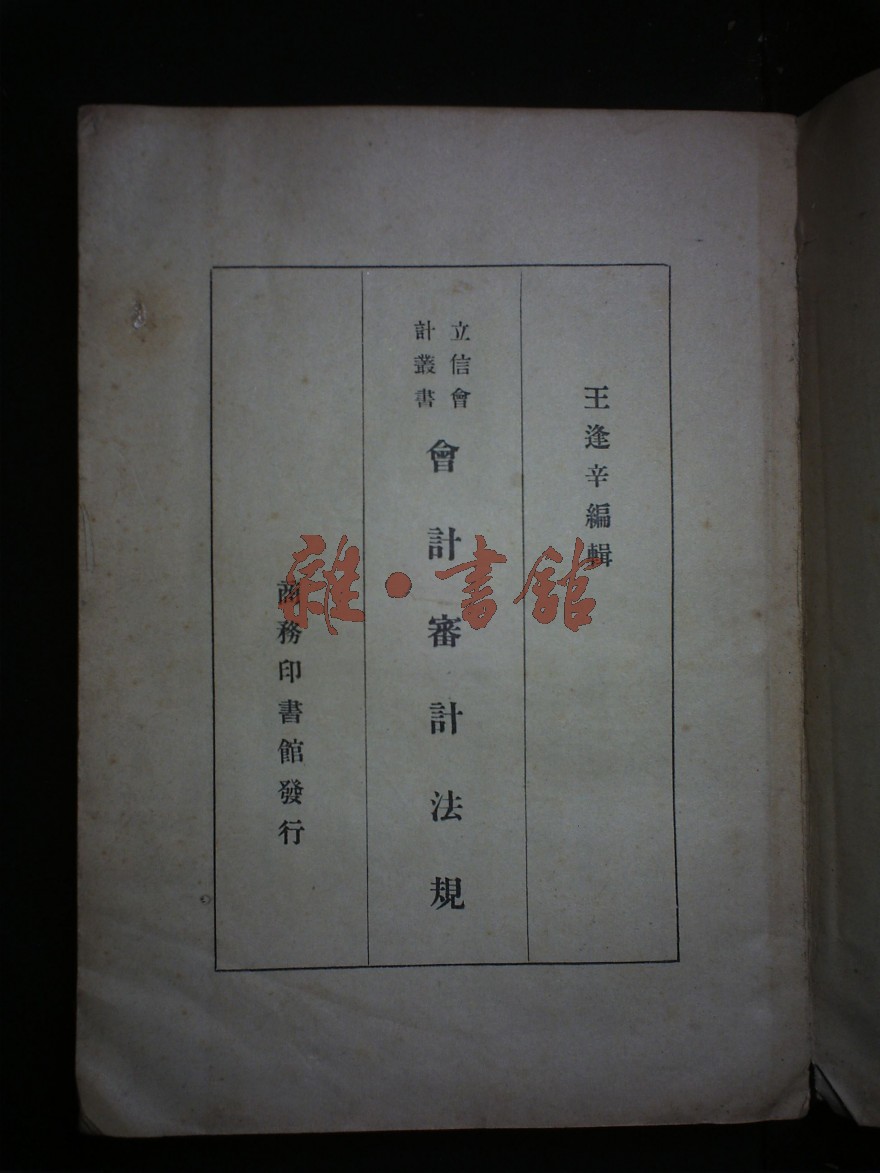 王逢辛編輯
立信會
計叢書
會計審計法規
商務印書館發行
雜·書館